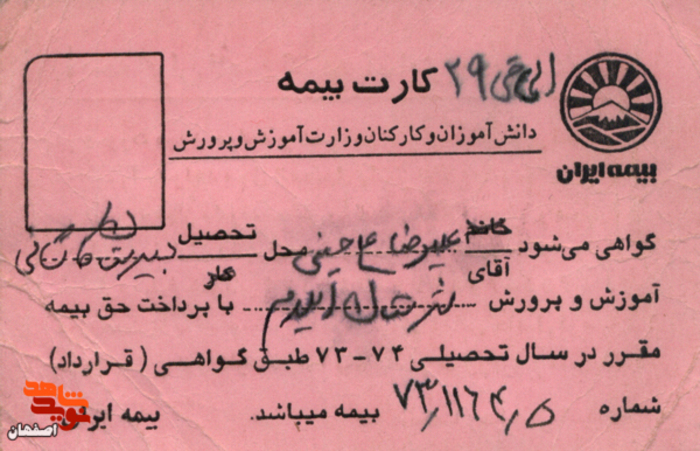 کارت بیمه ۲۹
دانش آموزان و کارکنان وزارت آموزش و پرورش
بیمه ایران
گواهی می‌شود خانم آقای علیرضا حسینی محل تحصیل کار
آموزش و پرورش با پرداخت حق بیمه
مقرر در سال تحصیلی ۷۴-۷۳ طبق گواهی ( قرارداد )
شماره ۷۳,۱۱۶۴,۵ بیمه میباشد. بیمه ایران
نوید شاهد
اصفهان